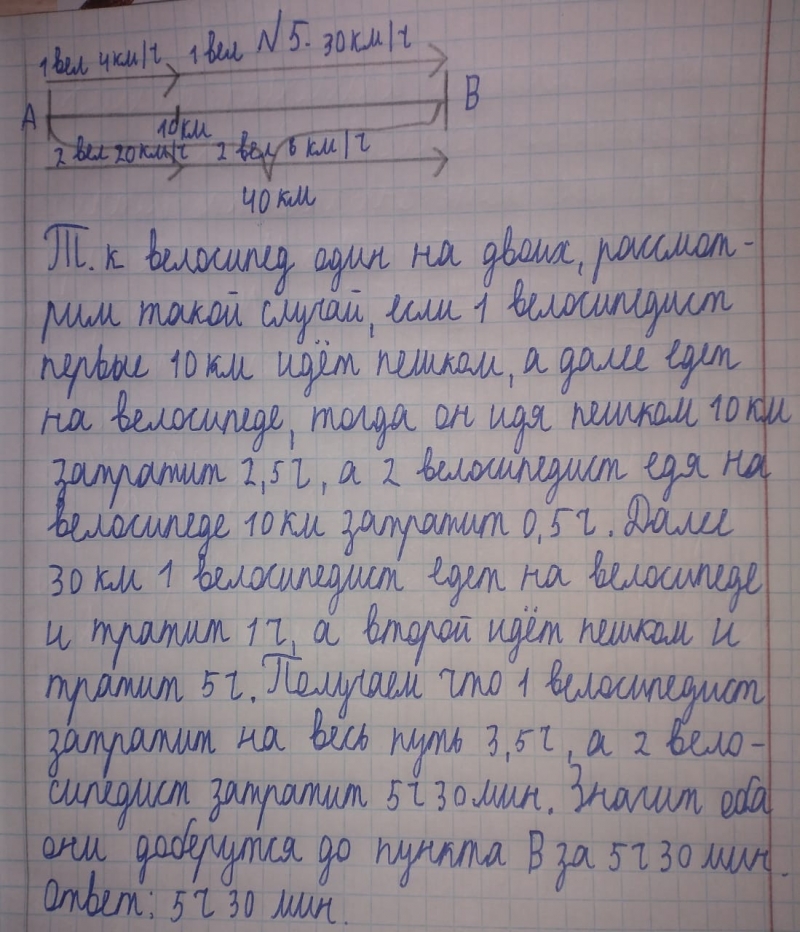 N5.
1 вел 4км/ч 1 вел 30км/ч
А В
10км
2 вел 20км/ч 2 вел 6 км/ч
40 км
Т.к велосипед один на двоих, рассмот-
рим такой случай, если 1 велосипедист
первые 10 км идёт пешком, а далее едет
на велосипеде, тогда он идя пешком 10 км
затратит 2,5 ч, а 2 велосипедист едя на
велосипеде 10 км затратит 0,5 ч. Далее
30 км 1 велосипедист едет на велосипеде
и тратит 1 ч, а второй идёт пешком и
тратит 5 ч. Получаем что 1 велосипедист
затратит на весь путь 3,5 ч, а 2 вело-
сипедист затратит 5 ч 30 мин. Значит оба
они доберутся до пункта В за 5 ч 30 мин.
Ответ: 5 ч 30 мин.